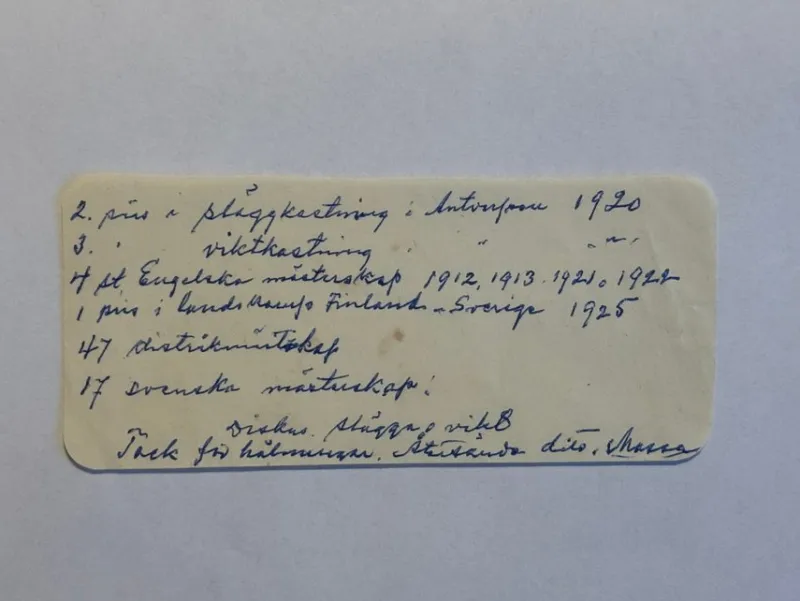 2. pris i släggkastning i Antverpen 1920
3. " viktkastning " " " "
4 st. Engelska mästerskap 1912, 1913. 1921 o 1922
1 pris i Landskamp Finland - Sverige 1925
47 distriktmästskap
17 svenska mästerskap:
Diskus. slägga o vikt
Tack för hälsningar. Återsände dito.